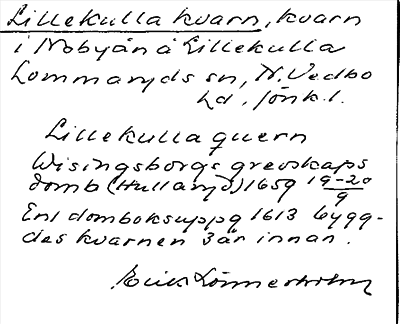 Lillekulla kvarn, kvarn
i Nobyån å Lillekulla
Lommaryds sn, N. Vedbo
hd, Jönk.l.
Lillekulla quern
Wisingsborgs grevskaps
domb (Hullaryd) 1659 19-20/9
Enl domboksuppg 1613 bygg-
des kvarnen 3 år innan.